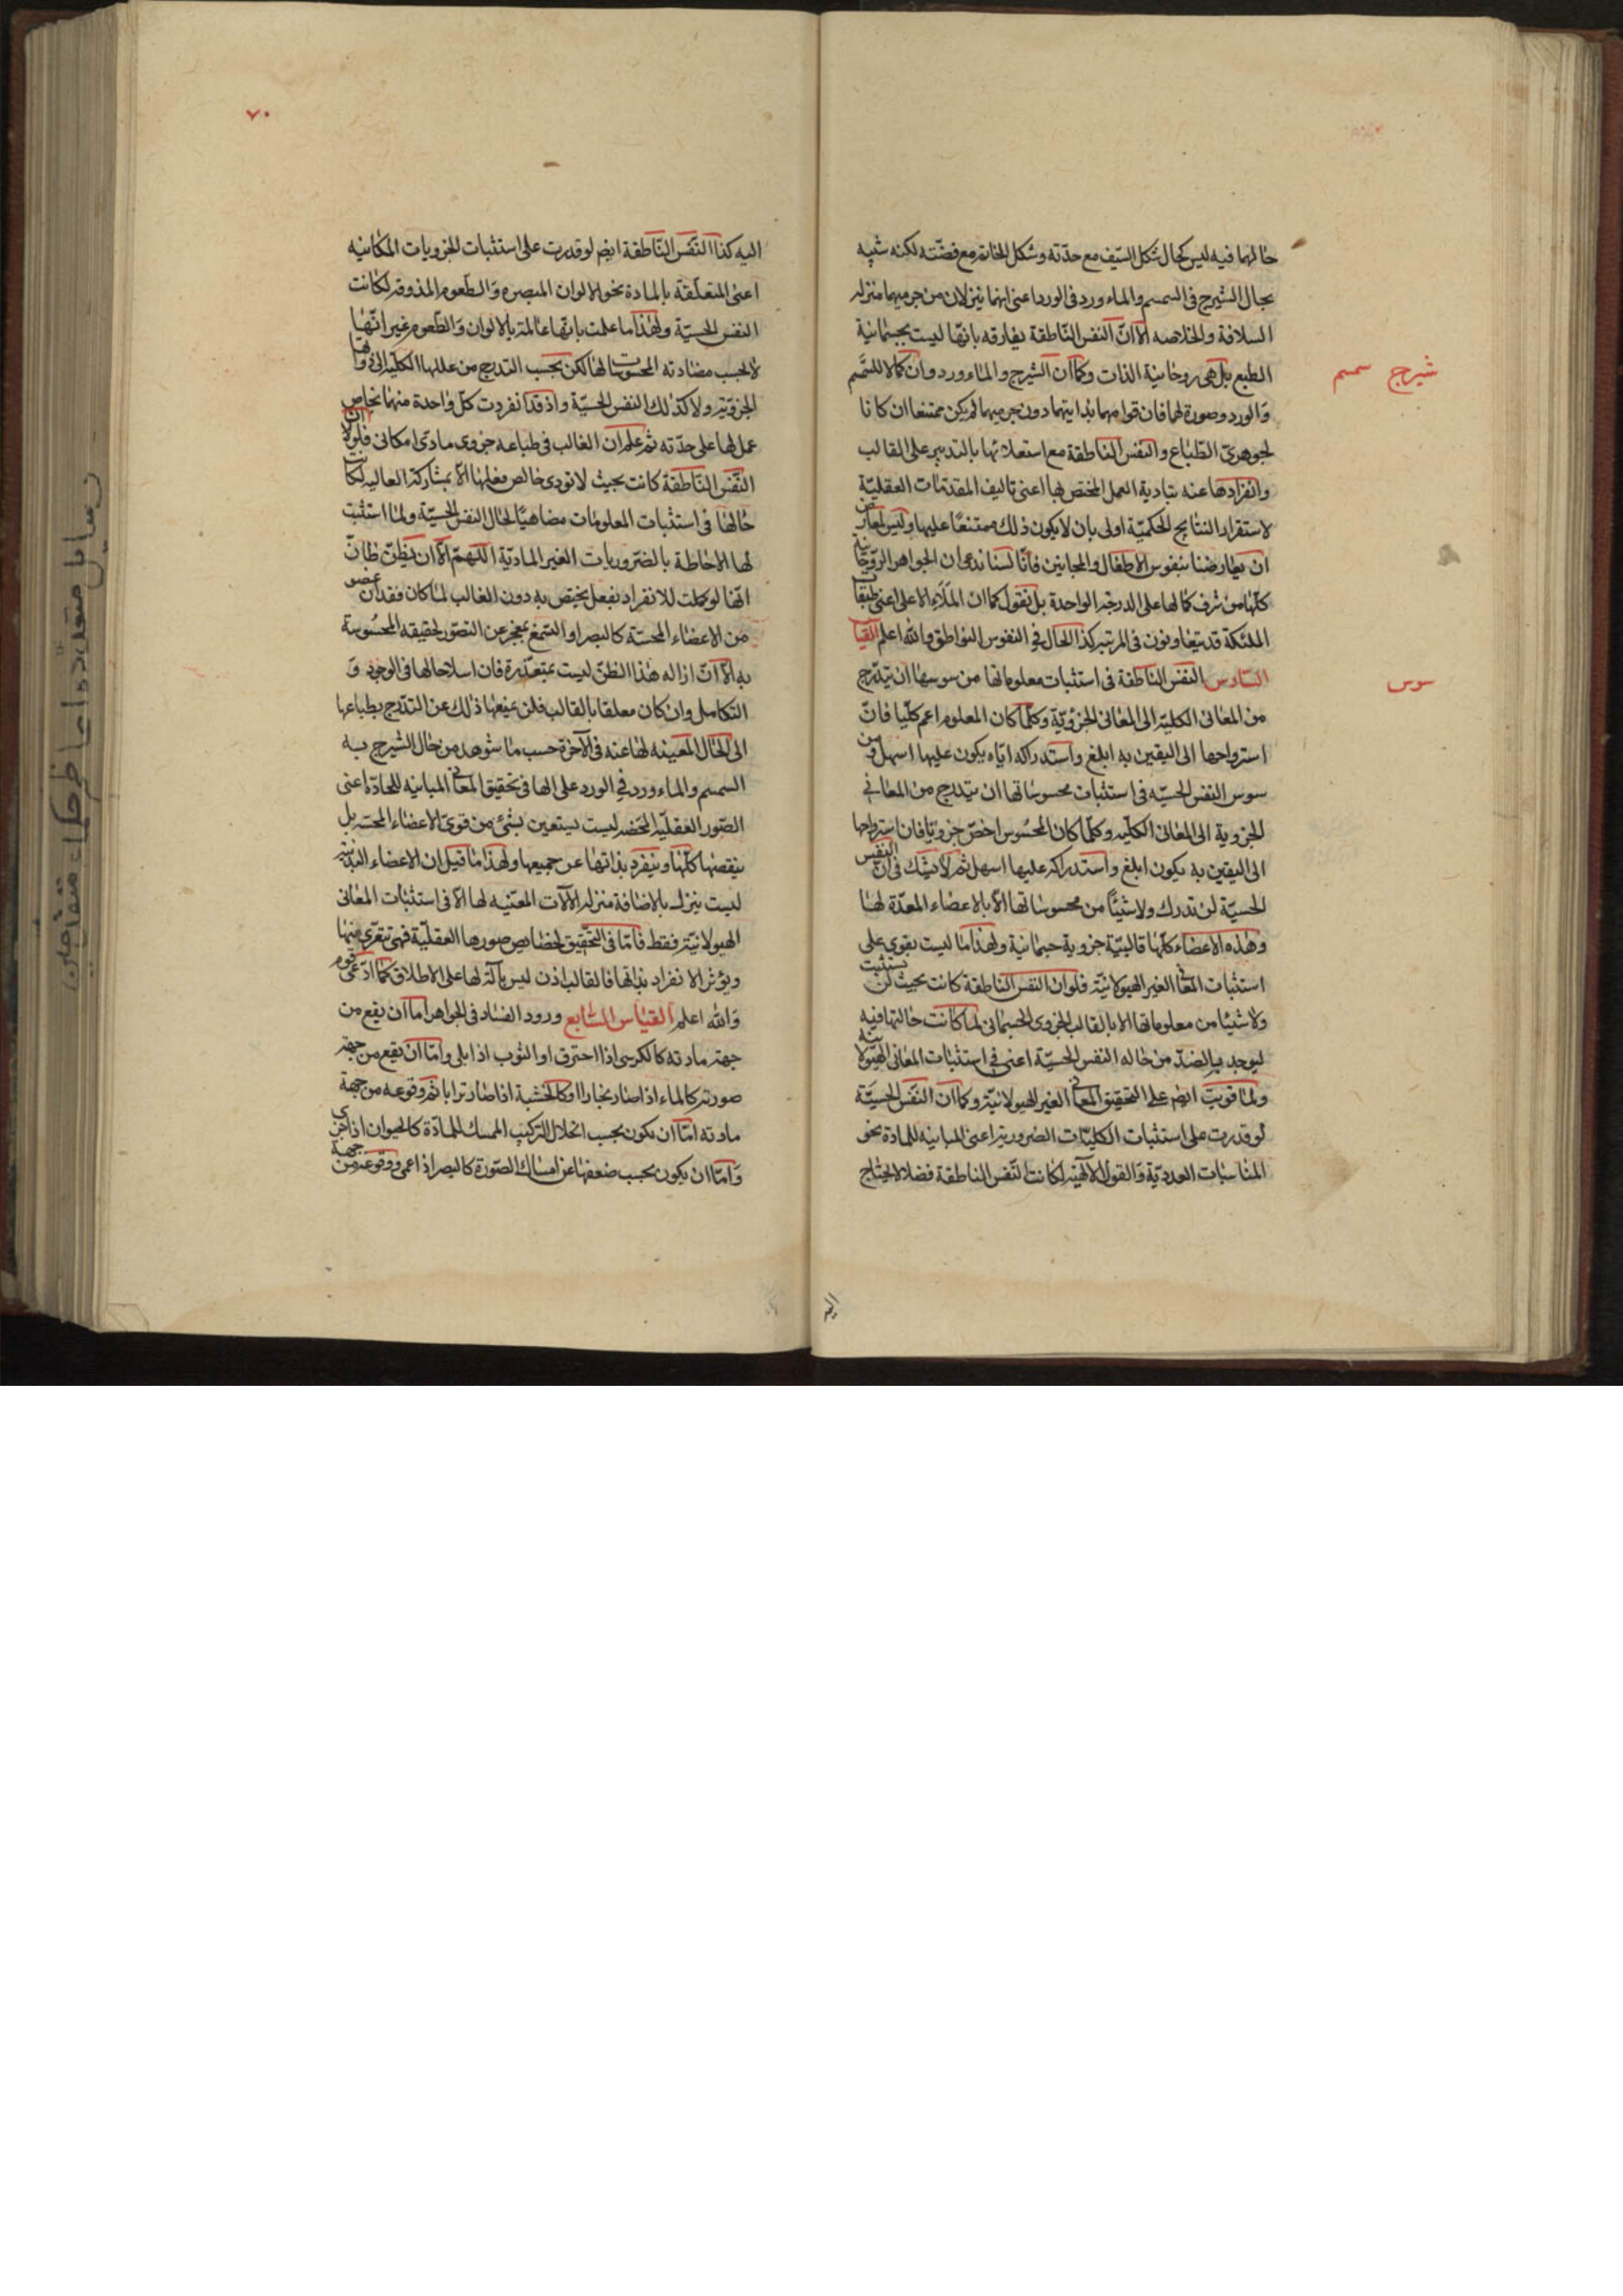 حالهما فيه ليس كحال شكل السّيف مع حدّته وشكل الخاتم مع فضّته لكنه شبيه
بحال الشيرج فى السمسم والماء ورد فى الورد اعنى انهما ينزلان من جرميهما منزله
السلافة والخلاصه الا انّ النفس النّاطقة يفارقه بانّها ليست بجسمانية
الطبع بل هى روحانية الذات وكما ان الشيرج والماء ورد وان كانا للسّمسم
شيرج سمسم
والورد وصورة لهما فان قوامهما بذاتيتهما دون جرميهما لم يكن ممتنعا ان كانا
لجوهرىّ الطّباع والنفس الناطقة مع استعلائها بالتدبير على القالب
وانفرادها عنه بتادية العمل المختص بها اعنى تاليف المقدّمات العقليّة
لاستقرار النتايج الحكميّة اولى بان لا يكون ذلك ممتنعًا عليها وليس لمعارض
ان يعارضنا بنفوس الاطفال والمجانين فانّا لسنا ندعى ان الجواهر الرّوحانية
كلّها من شرف كمالها على الدرجة الواحدة بل نقول كما ان الملاء الاعلى اعنى طبقات
الملئكة قد يتفاوتون فى المرتبه كذا الحال فى النفوس النواطق والله اعلم القياس
السّادس النفس الناطقة فى استثبات معلوماتها من سوسها ان يتدرج
سوس
من المعانى الكليّه الى المعانى الجزؤيّة وكلّما كان المعلوم اعم كلّيا فانّ
استرواحها الى اليقين به ابلغ واستدراكه ايّاه يكون عليها اسهل ومن
سوس النفس الحسيّه فى استثبات محسوساتها ان يتدرج من المعانى
الجزوية الى المعانى الكليّه وكلّما كان المحسوس اخصّ جزويّا فان استرواحها
الى اليقين به يكون ابلغ واستدراكه عليها اسهل ثم لا نشك فى انّ النفس
الحسيّة لن تدرك ولا شيئًا من محسوساتها الّا بالاعضاء المعدّة لها
وهذه الاعضاء كلّها قالبيّة جزوية جسمانية ولهذا ما ليست يقوى على
استثبات المعانى الغير الهيولانيّة فلو ان النفس الناطقة كانت بحيث لن تستثبت
ولا شيئا من معلوماتها الا بالقالب الجزوى الجسمانى لما كانت حالتها فيه
ليوجد بالضدّ من حاله النفس الحسيّة اعنى فى استثبات المعانى الهيولانية
ولما قويت ايضم على التحقيق المعانى الغير الهيولانيّة وكما ان النّفس الحسيّة
لو قدرت على استثبات الكليّات الضرورية اعنى المباينه للمادة نحو
المناسبات العدديّة والقول الالهيّه لكانت النّفس الناطقة فضلا لا يحتاج
اليه
٧٠
اليه كذا النّفس النّاطقة ايضم لو قدرت على استثبات الجزويات المكانيه
اعنى المتعلّقة بالمادة نحو الالوان المبصره والطعوم المذوقه لكانت
النفس الحسيّة ولهذا ما علمت بانّها عالمة بالالوان والطّعوم غير انّها
لا بحسب مضادته المحسوسات لها لكن بحسب التدرج من عللها الكليّه الى ذواتها
الجزويّه ولا كذلك النفس الحسيّة واذ قد انفردت كلّ واحدة منهما بخاص
عمل لها على حدّته ثم علم ان الغالب فى طباعه جزوى مادى امكانى فلولا ان
النّفس النّاطقة كانت بحيث لا تودى خالص فعلها الّا بمشاركة العاليه لكان
حالها فى استثبات المعلومات مضاهيًا لحال النفس الحسيّة ولما استثبت
لها الاحاطة بالضّروريات الغير الماديّة اللّهمّ الّا ان يظنّ ظانّ
انّها لو كملت للانفراد بفعل يختص به دون الغالب لما كان فقدان عضو
من الاعضاء المحسّة كالبصر او السّمع بمعجز عن التصوّر لحقيقه المحسوسة
به الّا انّ ازاله هذا الظنّ ليست بمتعذّرة فان اسلاحالها فى الوجود و
التكامل وان كان معلقا بالقالب فلن يمنعها ذلك عن التدّرج بطباعها
الى الحال المعينه لها عنه فى الآخرة حسب ما شوهد من حال الشيرج به
السمسم والماء ورد فى الورد على الها فى تحقيق المعانى المباينه للمادّة اعنى
الصّور العقليّه المحضه ليست يستعين بشئ من قوى الاعضاء المحسّه بل
ينقصها كلّها وينفرد بذاتها عن جميعها ولهذا ما قيل ان الاعضاء البدنيّة
ليست ينزل بالاضافة منزلة الآلات المعنيه لها الّا فى استثبات المعانى
الهيولانيّة فقط فامّا فى التحقيق لخصايص صورها العقليّة فهى تتعرى منها
ويؤثر الانفراد بذاتها فالقالب اذن ليس بآلة لها على الاطلاق كما ادّعى قوم
والله اعلم القياس السّابع ورود الفساد فى الجواهر اما ان يقع من
جهة مادته كالكرسى اذا احترق او الثوب اذا بلى وامّا ان يقع من جهة
صورته كالماء اذا صار بخارا او كالخشبة اذا صار ترابا ثم وقوعه من جهة
مادته امّا ان يكون بحسب انحلال التركيب الممسك للمادّة كالحيوان اذا
وامّا ان يكون بحسب ضعفها عن امساك الصّورة كالبصر اذا عمى ووقوعه من جهة